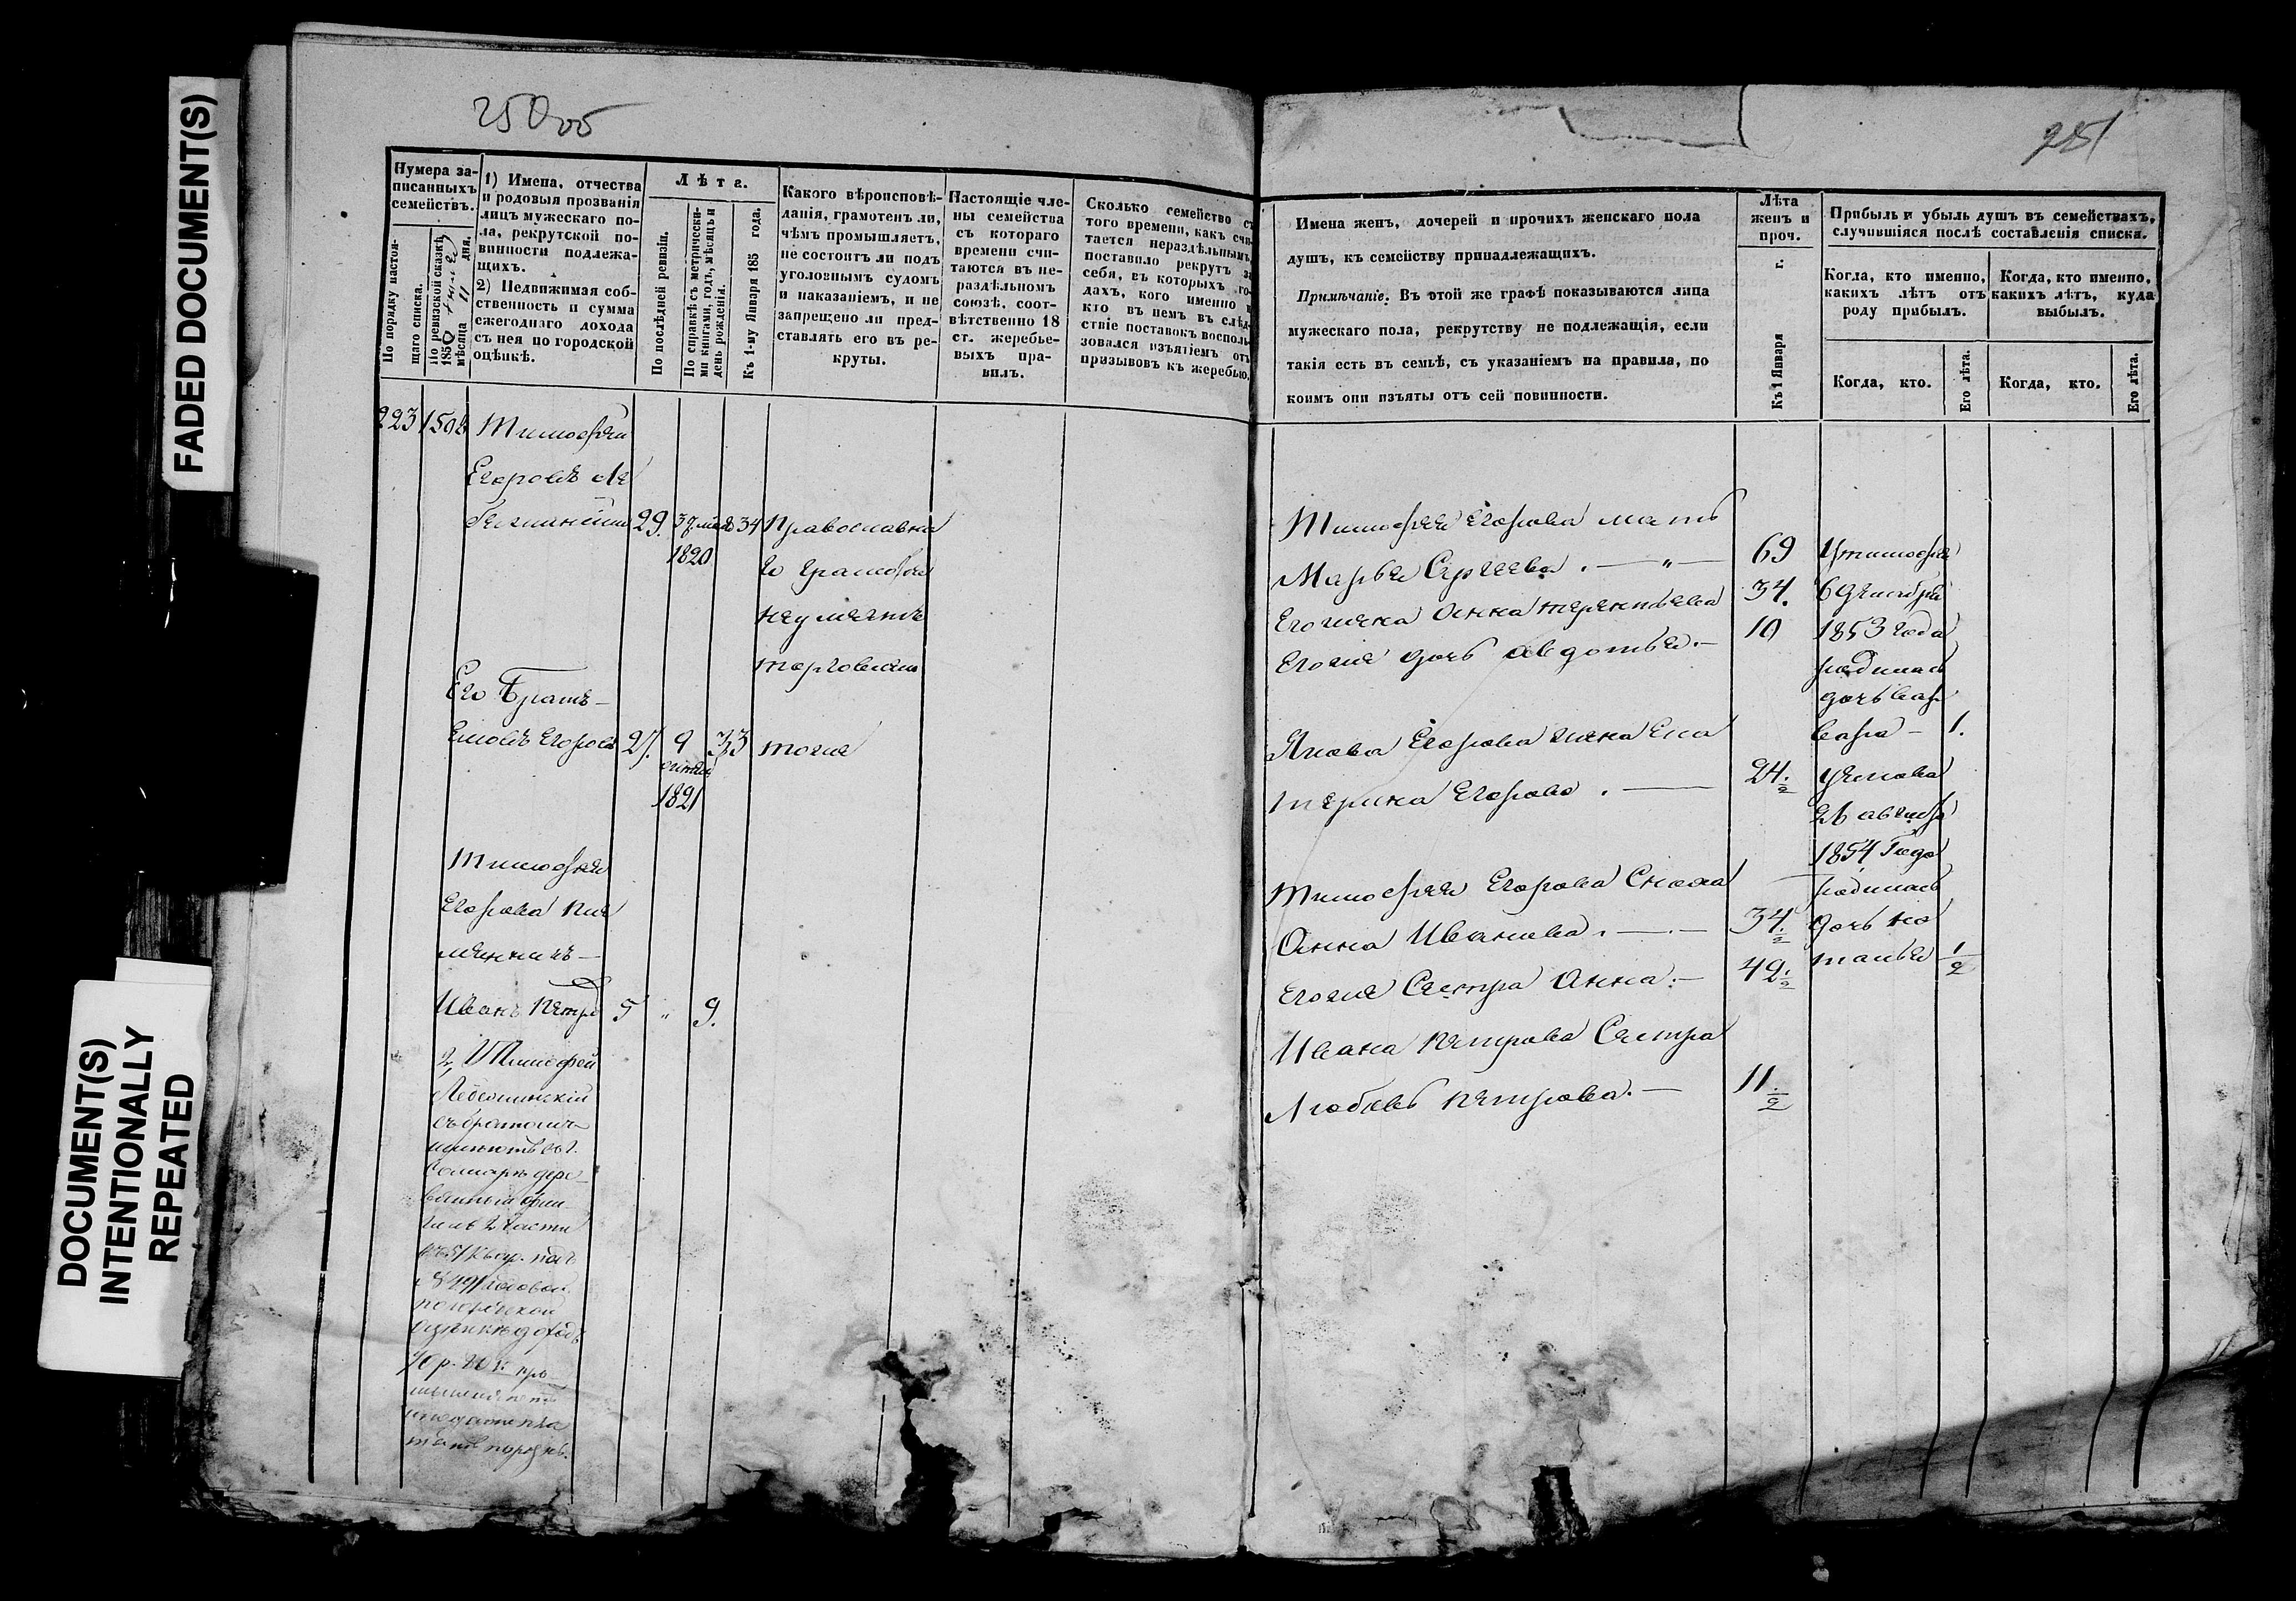 FADED DOCUMENT(S)
DOCUMENT(S)
INTENTIONALLY
REPEATED
250об
Нумера за-
писанныхъ
семействъ.
По порядку настоя-
щаго списка.
По ревизской сказкѣ
1850
мѣсяца 11 дня.
1) Имена, отчества
и родовыя прозванія
лицъ мужескаго по-
ла, рекрутской по-
винности подлежа-
щихъ.
2) Недвижимая соб-
ственность и сумма
ежегоднаго дохода
съ нея по городской
оцѣнкѣ.
Лѣта.
По послѣдней ревизіи.
По справкѣ съ метрически-
ми книгами, годъ, мѣсяцъ и
день рожденія.
Къ 1-му Января 185 года.
Какого вѣроисповѣ-
данія, грамотенъ ли,
чѣмъ промышляетъ,
не состоитъ ли подъ
уголовнымъ судомъ
и наказаніемъ, и не
запрещено ли пред-
ставлять его въ ре-
круты.
Настоящіе чле-
ны семейства
съ котораго
времени счи-
таются въ не-
раздѣльномъ
союзѣ, соот-
вѣтственно 18
ст. жеребье-
выхъ пра-
вилъ.
Сколько семейство съ
того времени, какъ счи-
тается нераздѣльнымъ,
поставило рекрутъ за
себя, въ которыхъ го-
дахъ, кого именно и
кто въ немъ въ слѣд-
ствіе поставокъ восполь-
зовался изъятіемъ отъ
призывовъ къ жеребью.
223 1502 Тимофей
Егоровъ Ле
29. 34 Православна
1820
го грамотѣ
неумѣетъ
Его Братъ
Егоровъ 27. 9 33 тоже
1821
Тимофея
Егорова пле
мянникъ
Иванъ Петр 5 " 9.
2, Тимофей
съ братомъ
имѣютъ въ г.
Самарѣ дере
вянный фли
гель 2 части
погородской
оцѣнкѣ доходъ
281
Имена женъ, дочерей и прочихъ женскаго пола
душъ, къ семейству принадлежащихъ.
Примѣчаніе. Въ этой же графѣ показываются лица
мужескаго пола, рекрутству не подлежащія, если
такія есть въ семьѣ, съ указаніемъ на правила, по
коимъ они изъяты отъ сей повинности.
Лѣта
женъ и
проч.
Къ 1 Января г.
Прибыль и убыль душъ въ семействахъ,
случившіяся послѣ составленія списка.
Когда, кто именно,
какихъ лѣтъ отъ
роду прибылъ.
Когда, кто именно,
какихъ лѣтъ, куда
выбылъ.
Когда, кто.
Его лѣта.
Когда, кто.
Его лѣта.
Тимофея Егорова мать
Марья Сергеева . — " — 69
Его жена Анна терентьева 34.
Его же дочь авдотья. — 10
Якова Егорова жена Ека
терина Егорова . — 24. 1/2
Тимофея Егорова Сноха
Анна Иванова . — 34. 1/2
Его же Сестра Анна. — 42. 1/2
Ивана Петрова Сестра
Любовь Петрова. — 11. 1/2
Утимофея
6 Декабря
1853 года
родилась
дочь вар
вара — 1.
1854 Года
родилась
дочь на
талья — 1/2